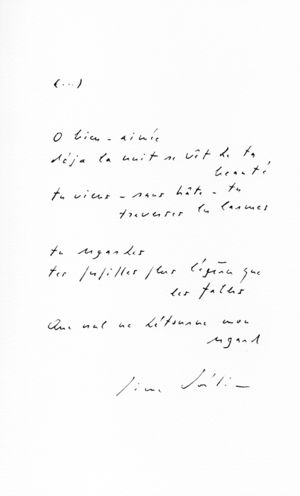 (...)
O bien-aimée
déja la nuit se vêt de ta
beauté
tu viens - sans hâte - tu
traverses les larmes
tu regardes
tes pupilles plus légères que
les
Que nul ne détourne mon
regard